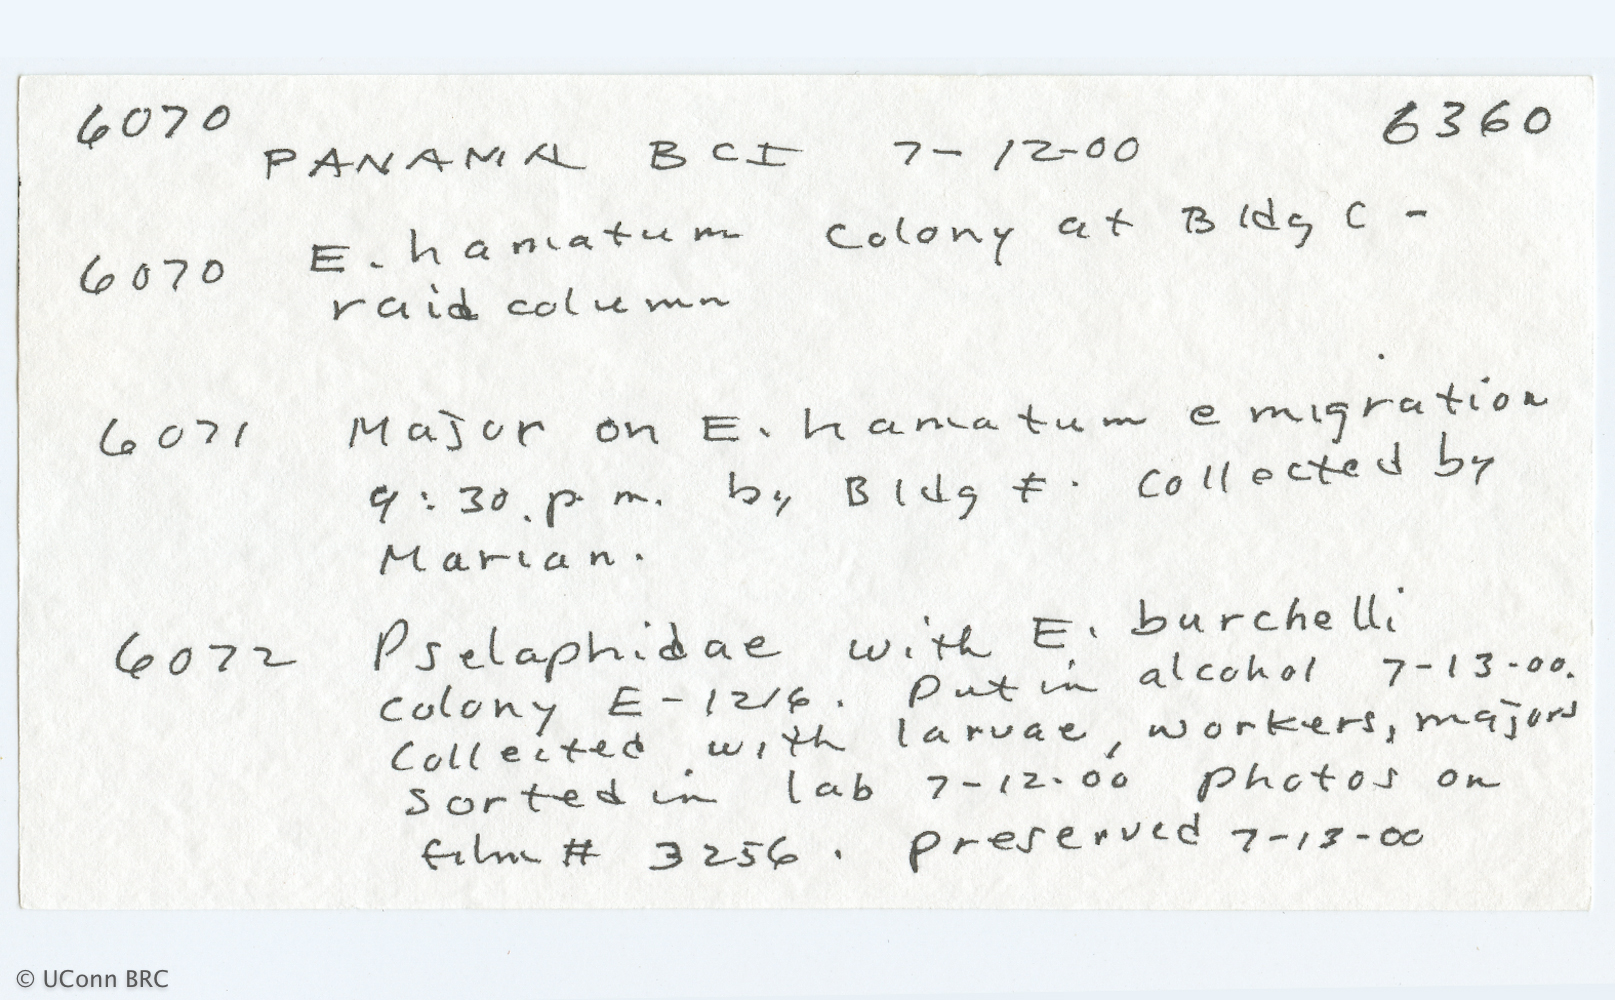 6070 6360
PANAMA BCI 7-12-00
6070 E. hamatum colony at Bldg C -
raid column
6071 Major on E. hamatum emigration
9:30 p.m. by Bldg F. Collected by
Marian.
6072 Pselaphidae with E. burchelli
colony E-1216. Put in alcohol 7-13-00.
Collected with larvae, workers, majors
sorted in lab 7-12-00 photos on
film # 3256. preserved 7-13-00
© UConn BRC